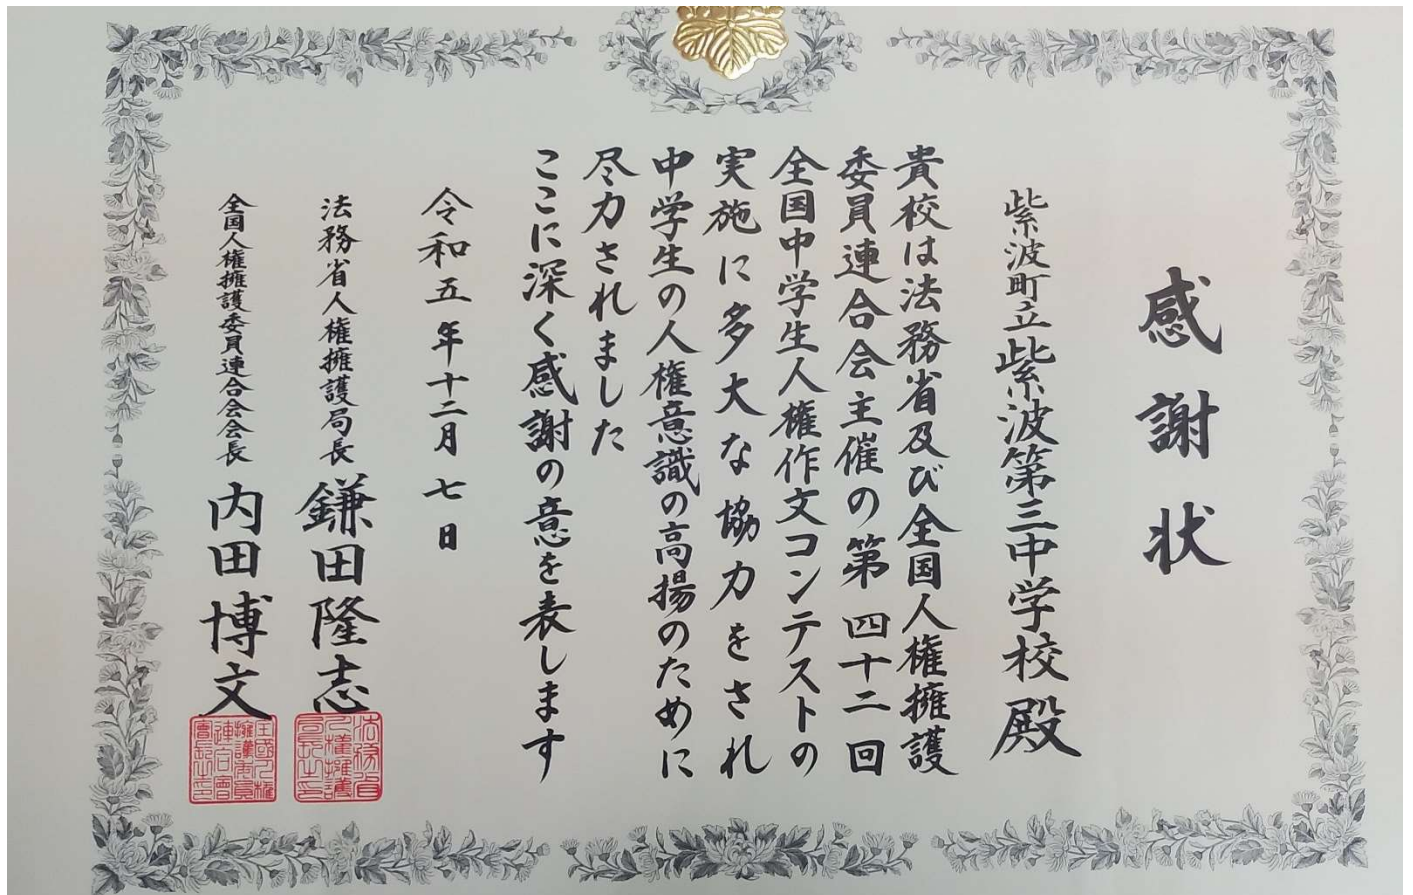 感謝状
紫波町立紫波第三中学校殿
貴校は法務省及び全国人権擁護
委員連合会主催の第四十二回
全国中学生人権作文コンテストの
実施に多大な協力をされ
中学生の人権意識の高揚のために
尽力されました
ここに深く感謝の意を表します
令和五年十二月七日
法務省人権擁護局長 鎌田隆志
全国人権擁護委員連合会会長 内田博文
法務省人権擁護局長之印
全國人権擁護委員連合會會長之印